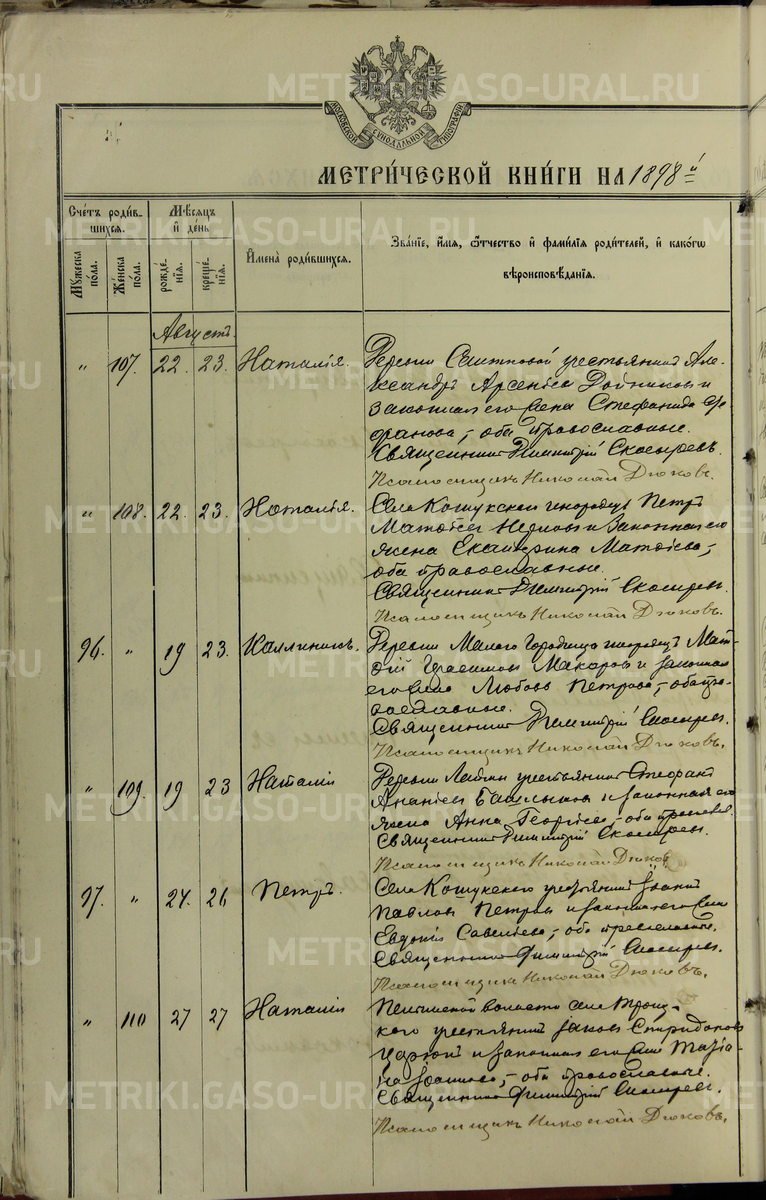 МОСКОВСКОЙ СѴНОДАЛЬНОЙ ТИПОГРАФІИ
МЕТРИ́ЧЕСКОЙ КНИ́ГИ НА 1898 й
Сче́тъ роди́вшихсѧ.
Мѣ́сѧцъ и҆ де́нь
Муже́ска по́ла.
Же́нска по́ла.
рожде́нїѧ.
креще́нїѧ.
И҆мена̀ роди́вшихсѧ.
Зва́нїе, и҆́мѧ, ѻ҆́тчество и҆ фами́лїѧ роди́телей, и҆ како́гѡ
вѣроисповѣ́данїѧ.
Августъ
" 107. 22. 23. Наталія. Деревни крестьянинъ Але-
ксандръ Арсеніевъ и
законная его жена Стефанида
оба православные.
Священникъ Димитрій Скосыревъ.
Псаломщикъ Николай Дюковъ.
" 108. 22. 23. Наталія. Села Кошукскаго инородецъ Петръ
Матѳіевъ и законная его
жена Екатерина Матѳіева,
оба православные.
Священникъ Димитрій Скосыревъ.
Псаломщикъ Николай Дюковъ.
96. " 19 23. Каллиникъ. Деревни Малаго Городища инородецъ Мат-
ѳій Герасимовъ Макаровъ и законная
его жена Любовь Петрова, оба пра-
вославные.
Священникъ Димитрій Скосыревъ.
Псаломщикъ Николай Дюковъ.
" 109. 19 23 Наталія Деревни крестьянинъ Стефанъ
Ананіевъ Башлыковъ и законная его
жена Анна Георгіева, оба православ.
Священникъ Димитрій Скосыревъ.
Псаломщикъ Николай Дюковъ.
97. " 24. 26 Петръ. Села Кошукскаго крестьянинъ Іоаннъ
Павловъ Петровъ и законная его жена
Евдокія Савельева, оба православные.
Священникъ Димитрій Скосыревъ.
Псаломщикъ Николай Дюковъ.
" 110 27 27 Наталія волости села Троиц-
каго крестьянинъ Іаковъ Спиридоновъ
и законная его жена Татіа-
на Іоаннова, оба православные.
Священникъ Димитрій Скосыревъ.
Псаломщикъ Николай Дюковъ.
METRIKI.GASO-URAL.RU